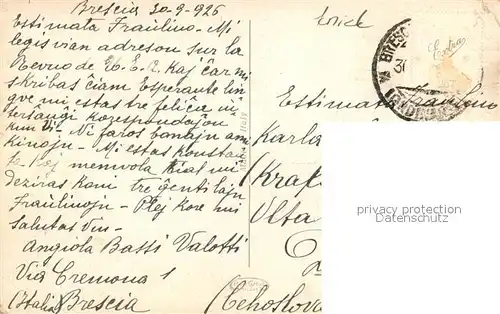 Brescia 30-9-926
Estimata Fraŭlino - Mi
legis vian adreson sur la
Revuo de E. kaj ĉar mi
skribas ĉiam Esperante lin
gve mi estas tre feliĉa in
terŝanĝi korespondaĵon
kun Vi - Ni faros bonajn ami
kinojn - Mi estas konstan
te menvola kial mi
deziras koni tre ĝentilajn
Fraŭlinojn - Plej kore mi
salutas Vin -
Angiola Bassi Valotti
Via Cremona 1
(Italia) Brescia
Estimata Fraŭlino
Karla
(Kra
Ulta
Ĉehoslova
BRESC
31
privacy protection
oldthing datenschutz